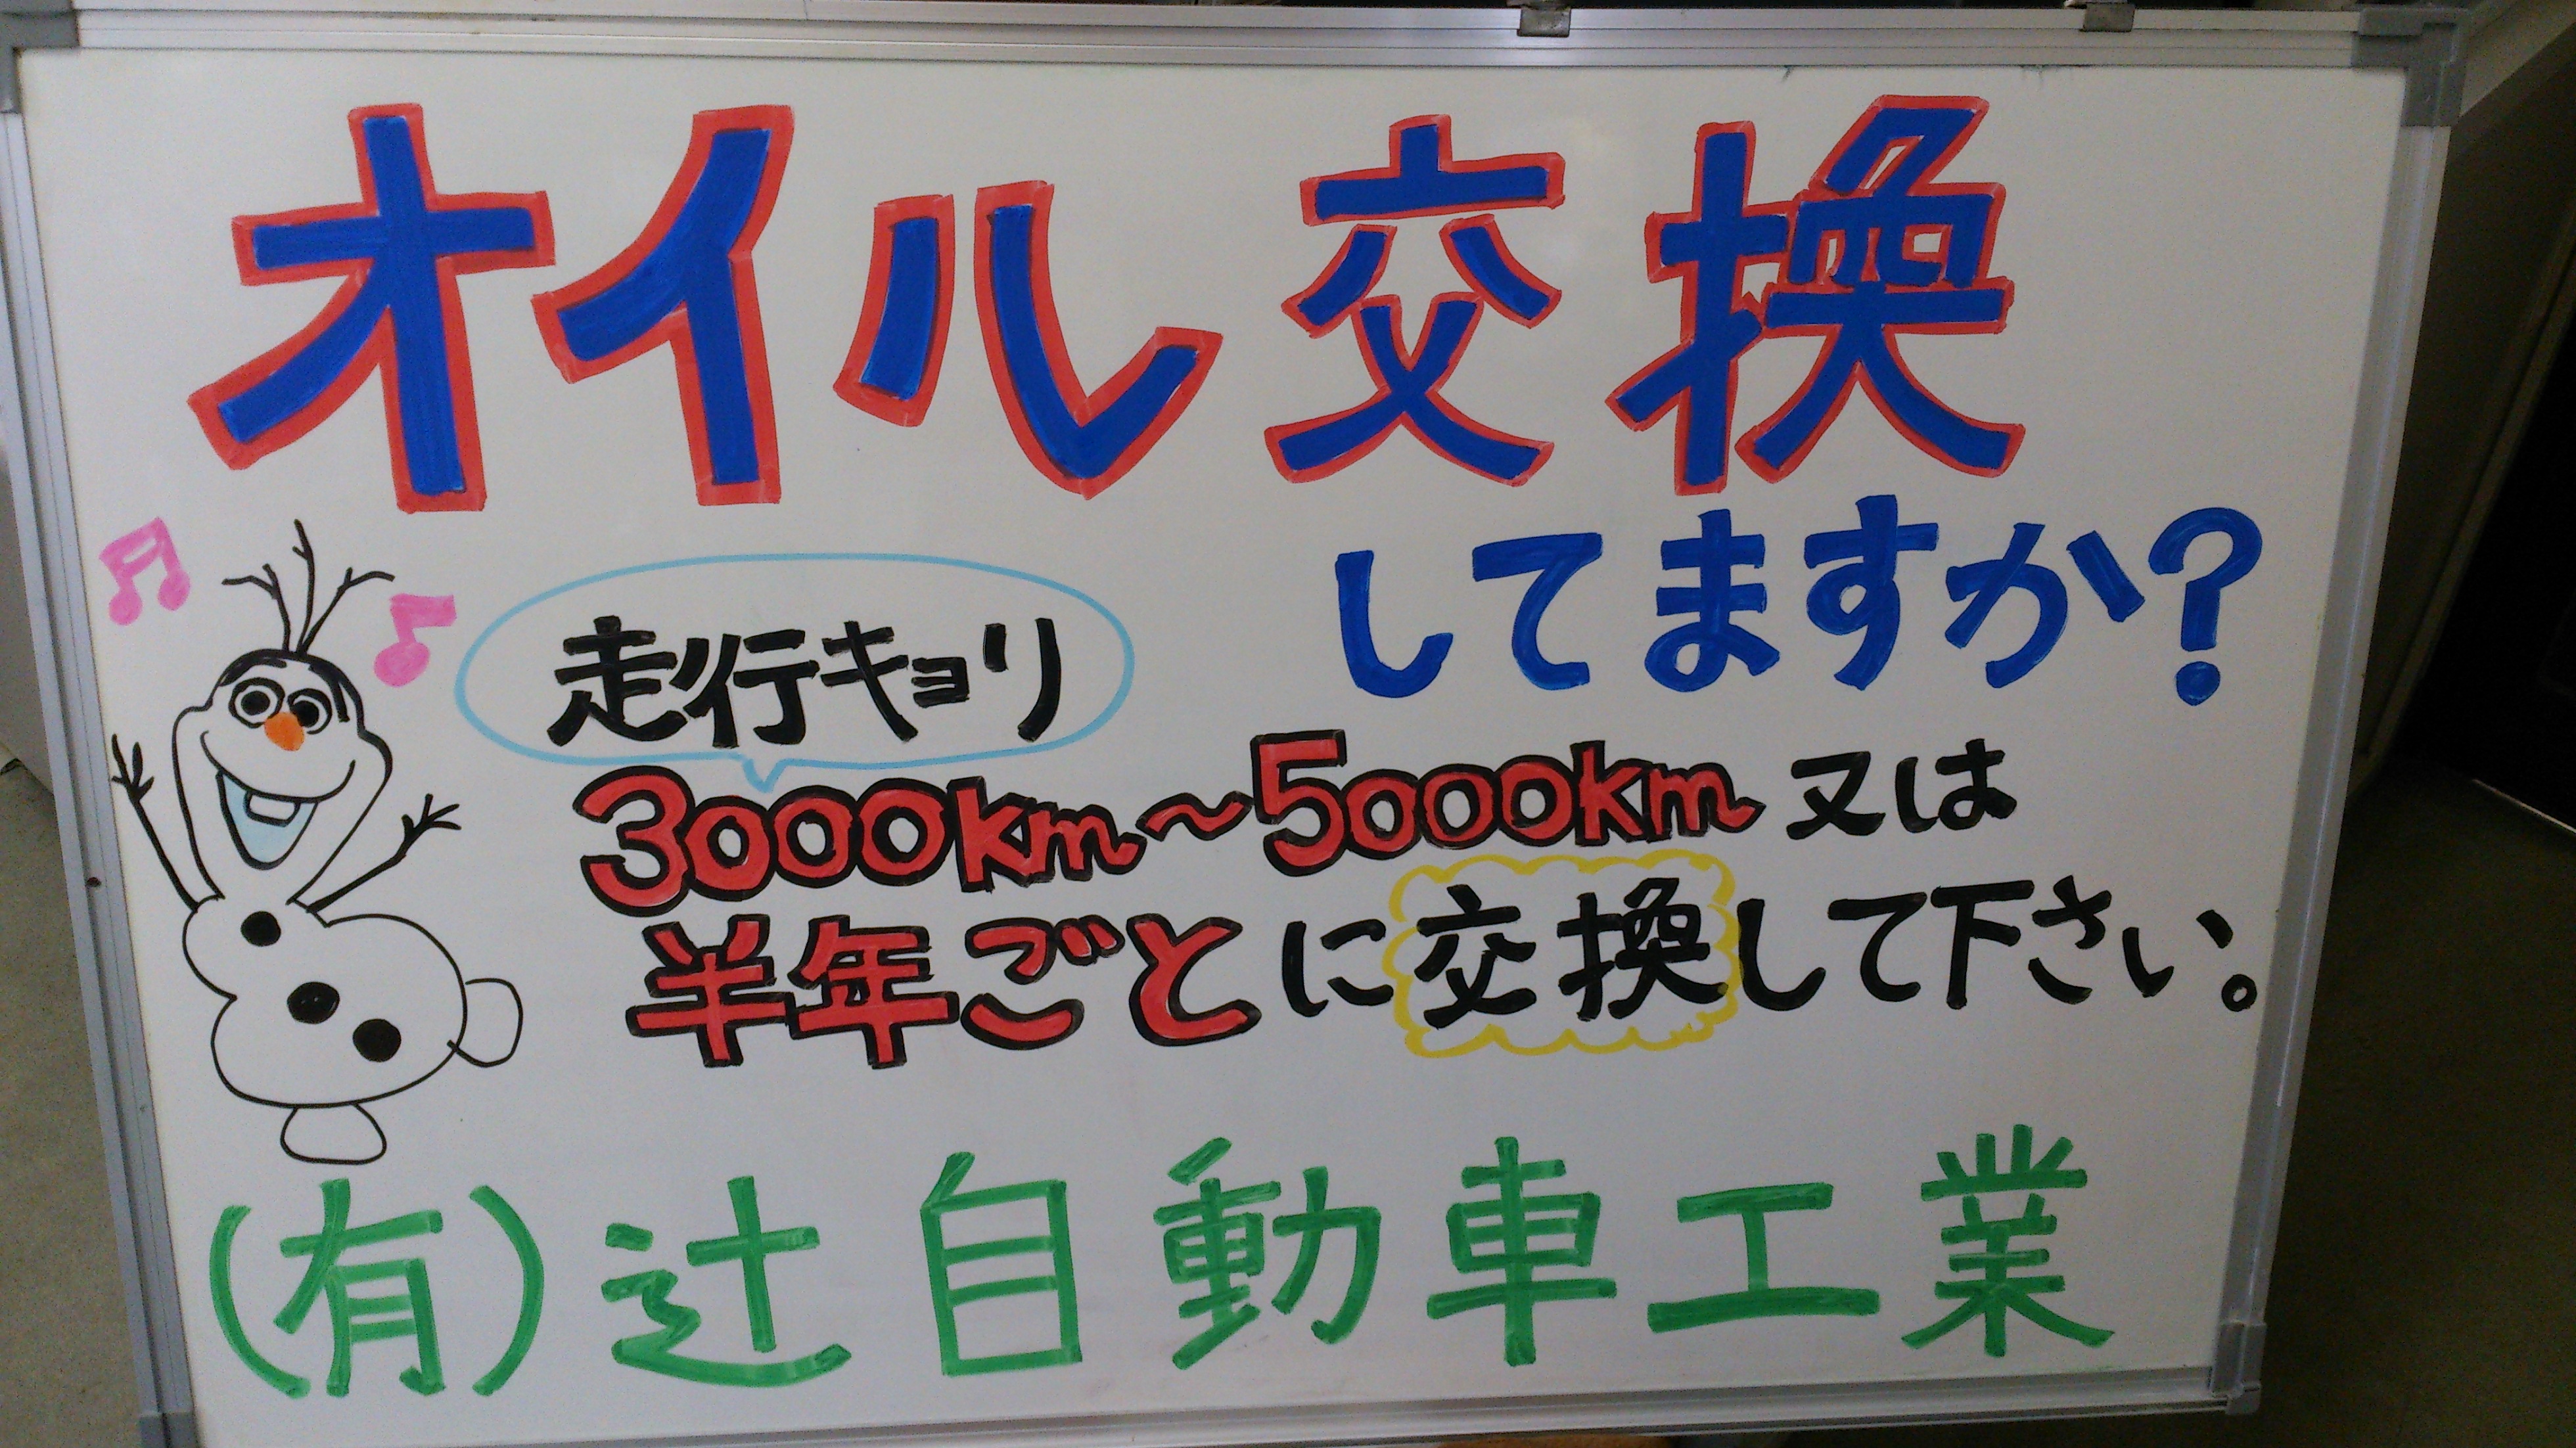 オイル交換
してますか?
走行キョリ
3000km～5000km 又は
半年ごとに交換して下さい。
(有)辻自動車工業